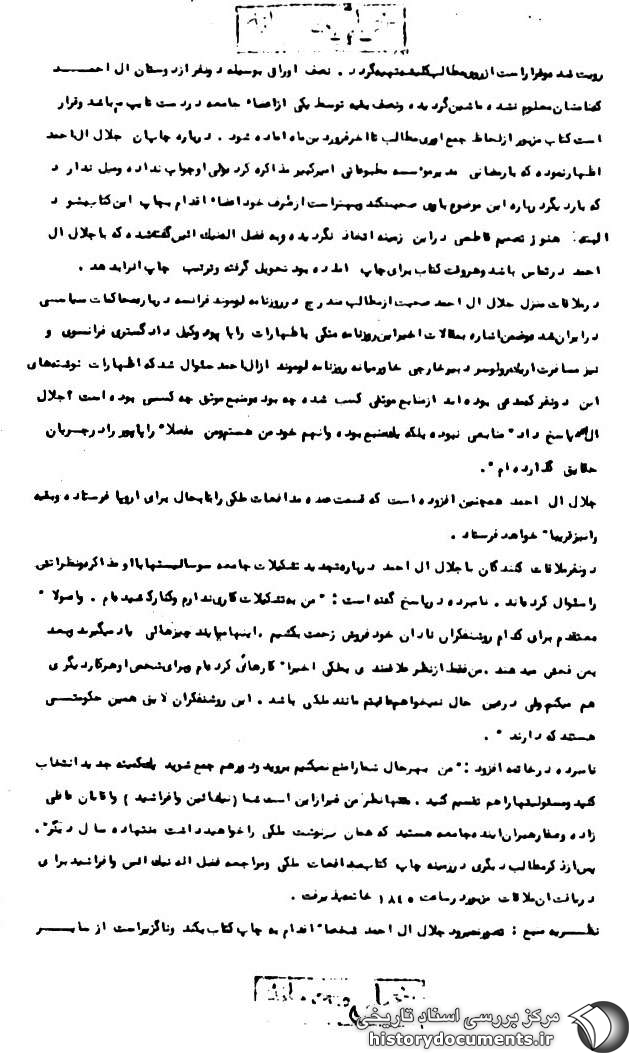 رویت شد و قرار است از روی مطالب کلیشه تهیه گردد . نصف اوراق بوسیله دو نفر از دوستان ال احمد
که نامشان معلوم نشده ماشین گردیده و نصف بقیه توسط یکی از اعضاء جامعه در دست تایپ می باشد و قرار
است کتاب مزبور از لحاظ جمع اوری مطالب تا اخر فروردین ماه اماده شود . درباره چاپ ان جلال ال احمد
اظهار نموده که با رمضانی مدیر موسسه مطبوعاتی امیرکبیر مذاکره کرده ولی او جواب نداده و میل ندارد
که بار دیگر درباره این موضوع با وی صحبت کند و بهتر است از طرف خود اعضاء اقدام بچاپ این کتاب بشود
البته هنوز تصمیم قاطعی در این زمینه اتخاذ نگردیده و به فضل اله نیک ائین گفته شده که با جلال ال
احمد در تماس باشد و هر وقت کتاب برای چاپ اماده بود تحویل گرفته و ترتیب چاپ انرا بدهد .
در ملاقات منزل جلال ال احمد صحبت از مطالب مندرج در روزنامه لوموند فرانسه درباره محاکمات سیاسی
در ایران شد و ضمن اشاره بمقالات اخیر این روزنامه متکی باظهارات رابا پور وکیل دادگستری فرانسوی و
نیز مسافرت اریک رولو سردبیر خارجی خاورمیانه روزنامه لوموند از ال احمد سئوال شد که اظهارات نوشته های
این دو نفر که مدعی بوده اند از منابع موثقی کسب شده چه بوده و منبع موثق چه کسی بوده است ؟ جلال
ال احمد پاسخ داد " منابعی نبوده بلکه یک منبع بوده و انهم خود من هستم و من مفصلا" رابا پور را در جریان
حقایق گذارده ام ".
جلال ال احمد همچنین افزوده است که قسمت عمده مدافعات ملکی را تا بحال برای اروپا فرستاده و بقیه
را نیز قریبا" خواهد فرستاد .
دو نفر ملاقات کنندگان با جلال ال احمد درباره تجدید تشکیلات جامعه سوسیالیستها با او مذاکره و نظراتش
را سئوال کرده اند . نامبرده در پاسخ گفته است : " من به تشکیلات کاری ندارم و کنار کشیده ام . و اصولا"
معتقدم برای کدام روشنفکران نادان خود فروش زحمت بکشیم . اینها میایند چیزهائی یاد میگیرند و بعد
بمن فحش میدهند . من فقط از نظر علاقمندی بملکی اخیرا" کارهائی کرده ام و برای شخص او هر کار دیگری
هم میکنم ولی در عین حال نمیخواهم عاقبتم مانند ملکی باشد . این روشنفکران لایق همین حکومتی
هستند که دارند ".
نامبرده در خاتمه افزود : " من بهرحال شما را منع نمیکنم بروید و دور هم جمع شوید یک کمیته جدید انتخاب
کنید و مسئولیتها را هم تقسیم کنید . منتها نظر من غیر از این است شما ( نیک ائین و افراشید ) و اقایان
زاده و رهبران اینده جامعه هستید که همان سرنوشت ملکی را خواهید داشت منتها ده سال دیگر".
پس از ذکر مطالب دیگری در زمینه چاپ کتاب مدافعات ملکی و مراجعه فضل اله نیک ائین و افراشید برای
دریافت ان ملاقات مزبور در ساعت ۱۸۴۵ خاتمه پذیرفت .
نظریه منبع : تصور نمیرود جلال ال احمد شخصا" اقدام به چاپ کتاب بکند و ناگزیر است از سایر
مرکز بررسی اسناد تاریخی
historydocuments.ir